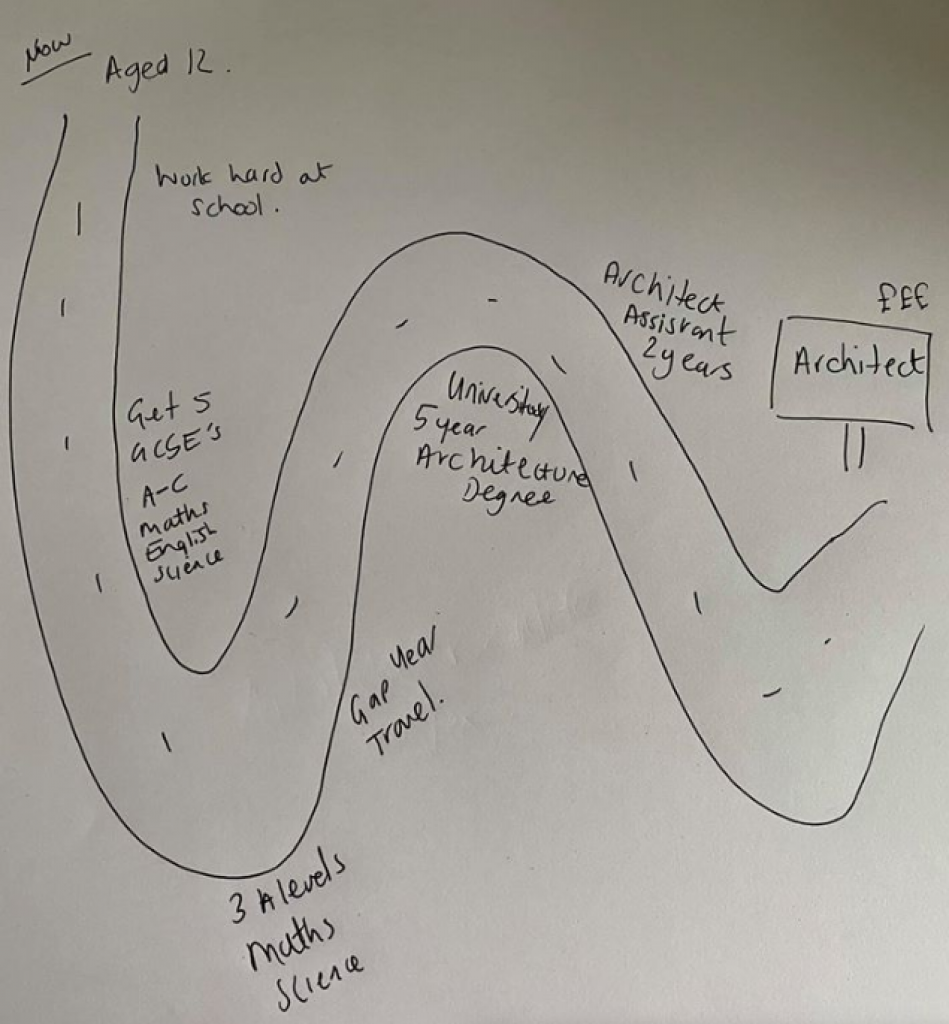 Now
Aged 12.
Work hard at
school.
Get 5
GCSE's
A-C
maths
English
science
3 A levels
maths
science
Gap year
Travel.
University
5 year
Architecture
Degree
Architect
Assistant
2 years
£££
Architect